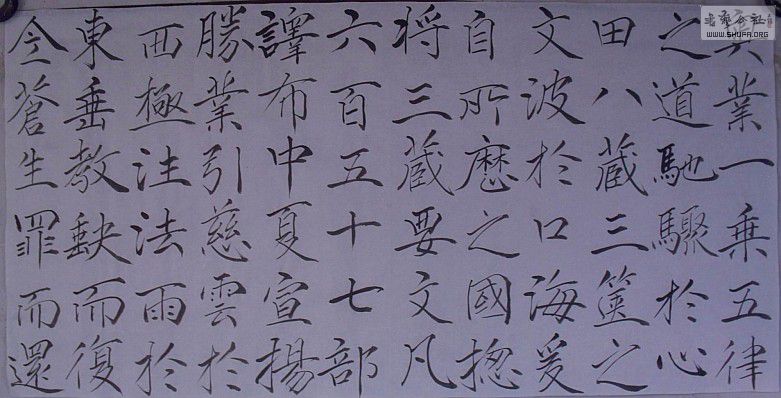 業一乘五律
之道馳驟於心
田八蔵三篋之
文波於口海爰
自所歷之國揔
将三蔵要文凡
六百五十七部
譯布中夏宣揚
勝業引慈雲於
西極注法雨於
東垂教缺而復
全蒼生罪而還
書藝公社
WWW.SHUFA.ORG